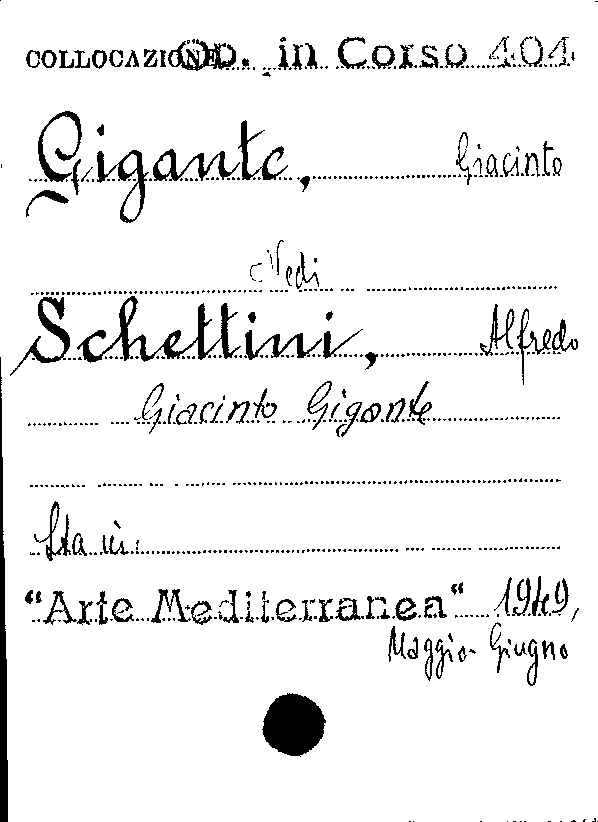 COLLOCAZIONE Op. in Corso 404
Gigante, Giacinto
Vedi
Schettini, Alfredo
Giacinto Gigante
Sta in:
"Arte Mediterranea" 1949,
Maggio-Giugno